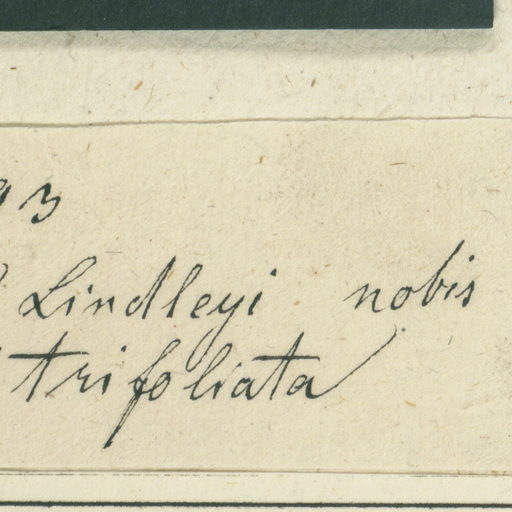 93
Lindleyi nobis
trifoliata